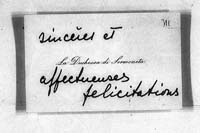 sincères et
La Duchessa di Serracorta
affectueuses
felicitations